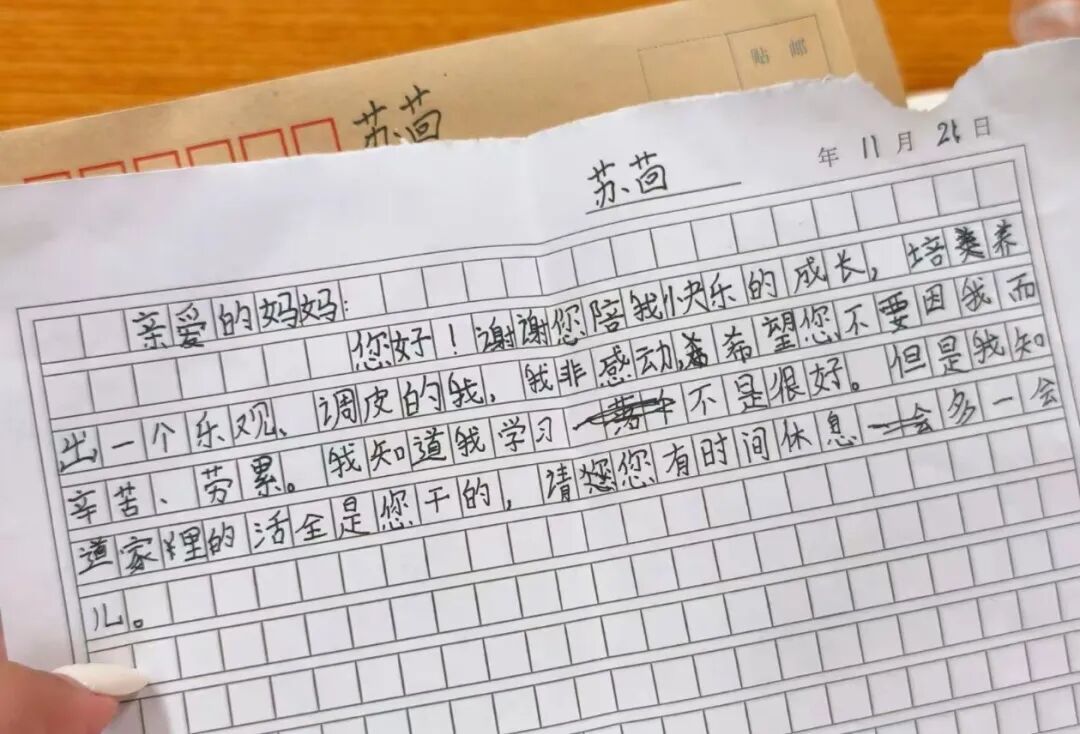 贴 邮
苏茴
年 11 月 25 日
苏茴
亲爱的妈妈：
您好！谢谢您陪我快乐的成长，培养
出一个乐观、调皮的我，我非感动，希望您不要因我而
辛苦、劳累。我知道我学习不是很好。但是我知
道家里的活全是您干的，请您您有时间休息一会多一会
儿。